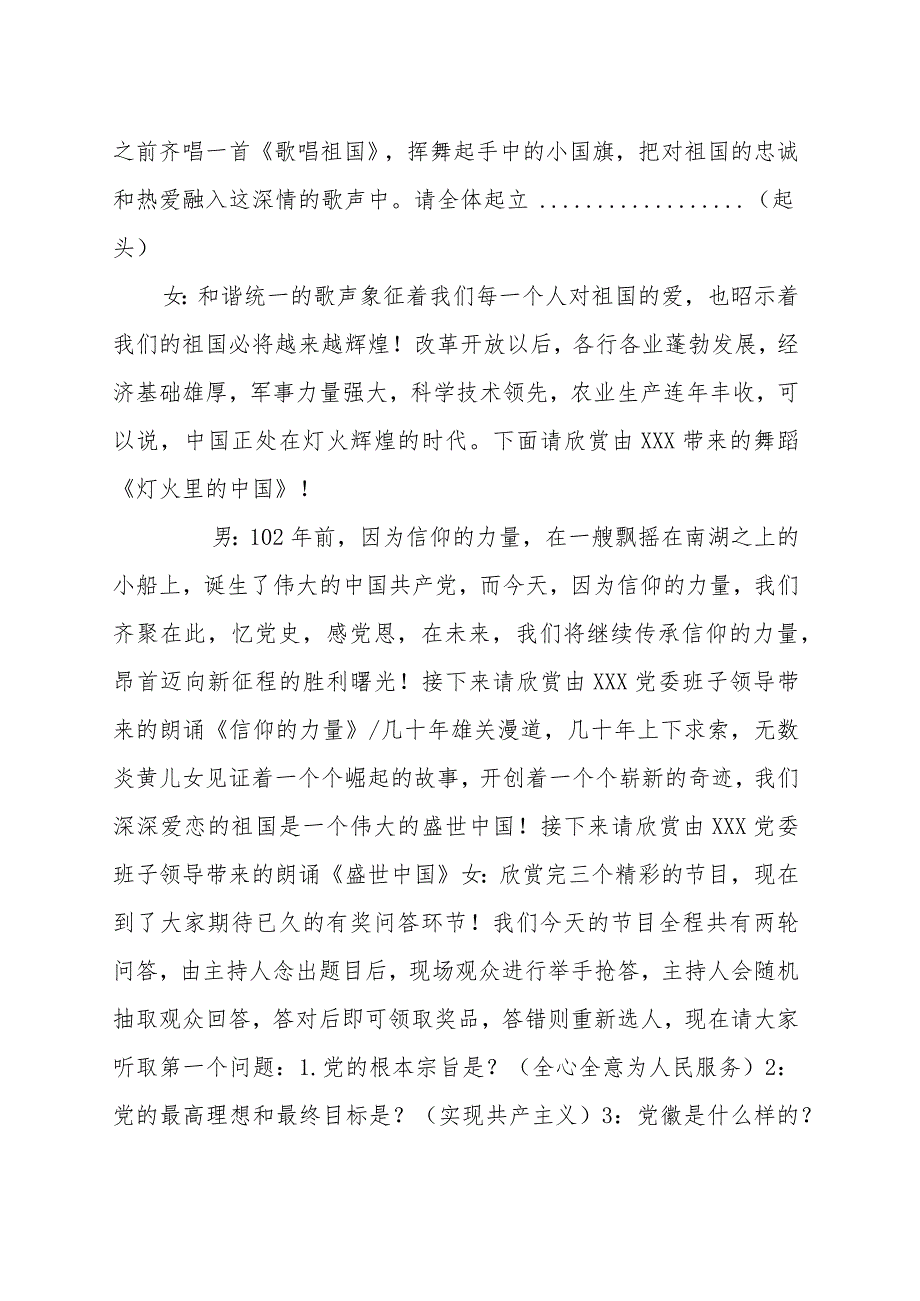 之前齐唱一首《歌唱祖国》，挥舞起手中的小国旗，把对祖国的忠诚
和热爱融入这深情的歌声中。请全体起立 ..................（起
头）
女：和谐统一的歌声象征着我们每一个人对祖国的爱，也昭示着
我们的祖国必将越来越辉煌！改革开放以后，各行各业蓬勃发展，经
济基础雄厚，军事力量强大，科学技术领先，农业生产连年丰收，可
以说，中国正处在灯火辉煌的时代。下面请欣赏由 XXX 带来的舞蹈
《灯火里的中国》！
男：102 年前，因为信仰的力量，在一艘飘摇在南湖之上的
小船上，诞生了伟大的中国共产党，而今天，因为信仰的力量，我们
齐聚在此，忆党史，感党恩，在未来，我们将继续传承信仰的力量，
昂首迈向新征程的胜利曙光！接下来请欣赏由 XXX 党委班子领导带
来的朗诵《信仰的力量》/几十年雄关漫道，几十年上下求索，无数
炎黄儿女见证着一个个崛起的故事，开创着一个个崭新的奇迹，我们
深深爱恋的祖国是一个伟大的盛世中国！接下来请欣赏由 XXX 党委
班子领导带来的朗诵《盛世中国》女：欣赏完三个精彩的节目，现在
到了大家期待已久的有奖问答环节！我们今天的节目全程共有两轮
问答，由主持人念出题目后，现场观众进行举手抢答，主持人会随机
抽取观众回答，答对后即可领取奖品，答错则重新选人，现在请大家
听取第一个问题：1.党的根本宗旨是？（全心全意为人民服务）2：
党的最高理想和最终目标是？（实现共产主义）3：党徽是什么样的？